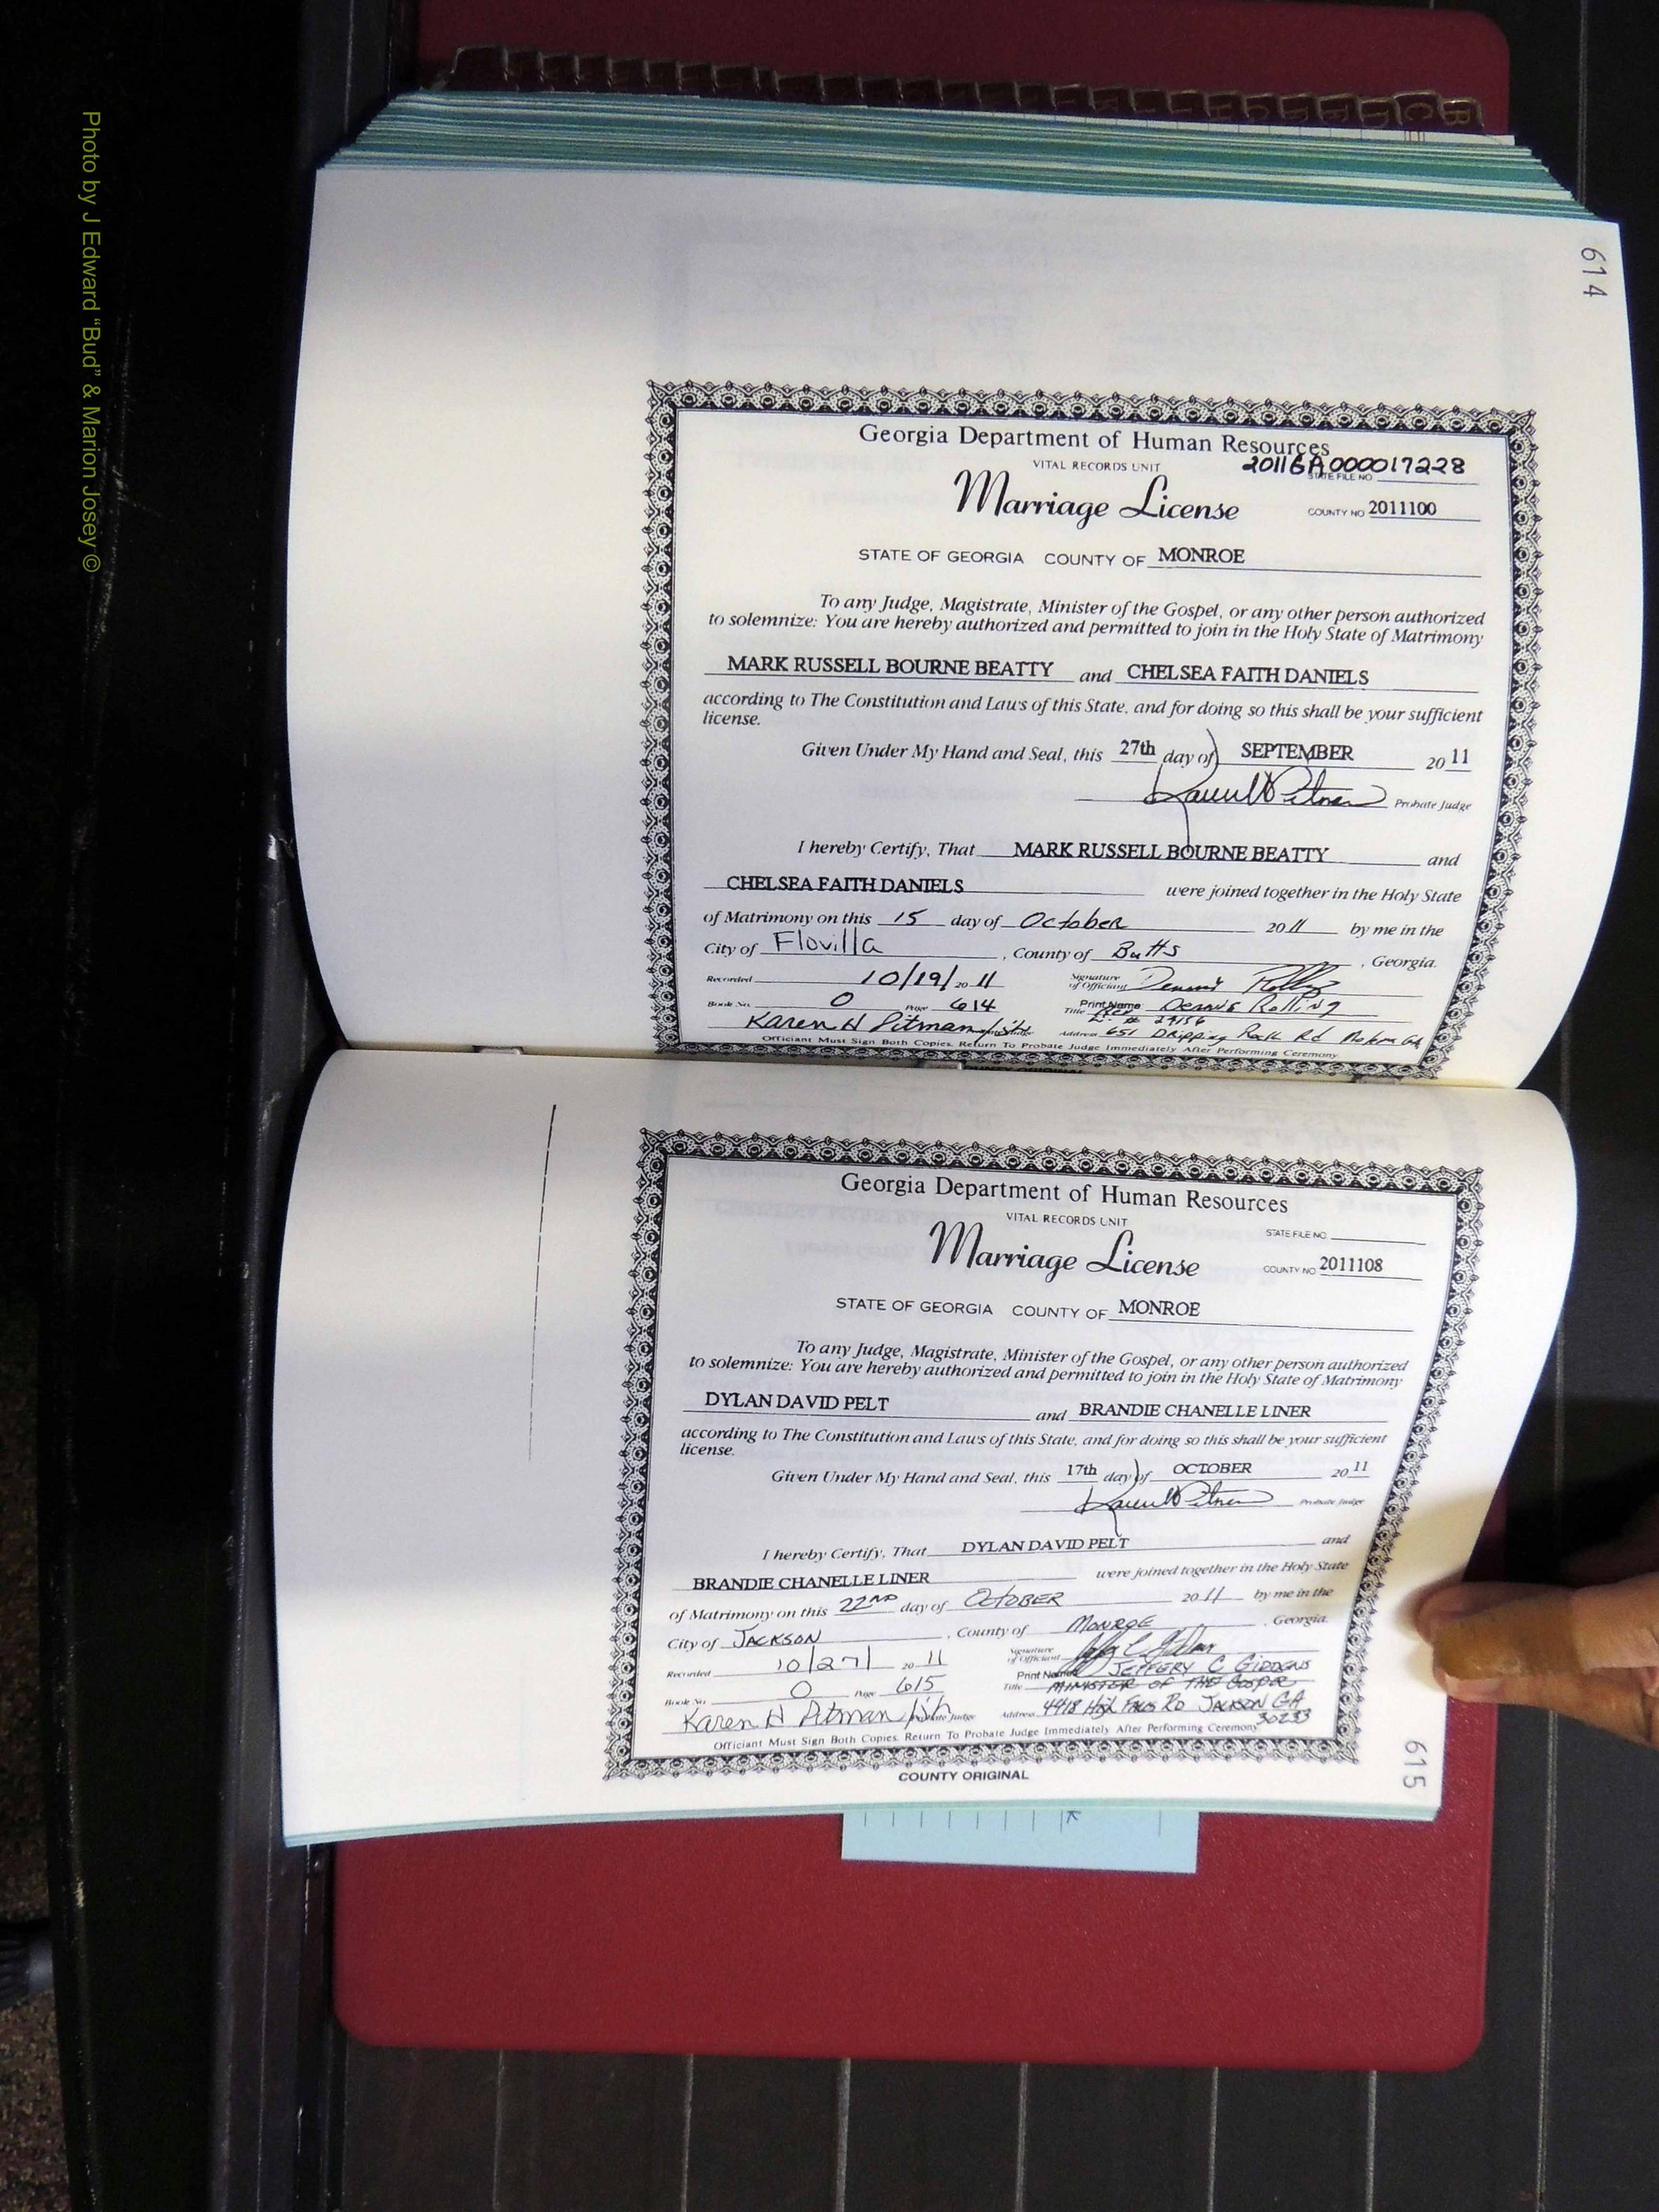 Photo by J Edward “Bud” & Marion Josey ©
B C D E F G H I J
614
Georgia Department of Human Resources
VITAL RECORDS UNIT
2011GA000017228
STATE FILE NO
Marriage License
COUNTY NO 2011100
STATE OF GEORGIA COUNTY OF MONROE
To any Judge, Magistrate, Minister of the Gospel, or any other person authorized
to solemnize: You are hereby authorized and permitted to join in the Holy State of Matrimony
MARK RUSSELL BOURNE BEATTY and CHELSEA FAITH DANIELS
according to The Constitution and Laws of this State, and for doing so this shall be your sufficient
license.
Given Under My Hand and Seal, this 27th day of SEPTEMBER 20 11
Karen H Pitman Probate Judge
I hereby Certify, That MARK RUSSELL BOURNE BEATTY and
CHELSEA FAITH DANIELS were joined together in the Holy State
of Matrimony on this 15 day of October 20 11 by me in the
City of Flovilla, County of Butts, Georgia.
Recorded 10/19/ 20 11 Signature of Officiant Dennis Rolling
Book No. O Page 614 Print Name Dennis Rolling
Title # 29156
Karen H Pitman Address 651 Dripping Rock Rd
Officiant Must Sign Both Copies. Return To Probate Judge Immediately After Performing Ceremony
Georgia Department of Human Resources
VITAL RECORDS UNIT
STATE FILE NO
Marriage License
COUNTY NO 2011108
STATE OF GEORGIA COUNTY OF MONROE
To any Judge, Magistrate, Minister of the Gospel, or any other person authorized
to solemnize: You are hereby authorized and permitted to join in the Holy State of Matrimony
DYLAN DAVID PELT and BRANDIE CHANELLE LINER
according to The Constitution and Laws of this State, and for doing so this shall be your sufficient
license.
Given Under My Hand and Seal, this 17th day of OCTOBER 20 11
Karen H Pitman Probate Judge
I hereby Certify, That DYLAN DAVID PELT and
BRANDIE CHANELLE LINER were joined together in the Holy State
of Matrimony on this 22ND day of OCTOBER 20 11 by me in the
City of JACKSON, County of MONROE, Georgia.
Recorded 10/27/ 20 11 Signature of Officiant
Print Name JEFFERY C GIDDENS
Book No. O Page 615 Title MINISTER OF THE GOSPEL
Karen H Pitman Probate Judge Address 4418 High Falls Rd JACKSON GA
30233
Officiant Must Sign Both Copies. Return To Probate Judge Immediately After Performing Ceremony
COUNTY ORIGINAL
615